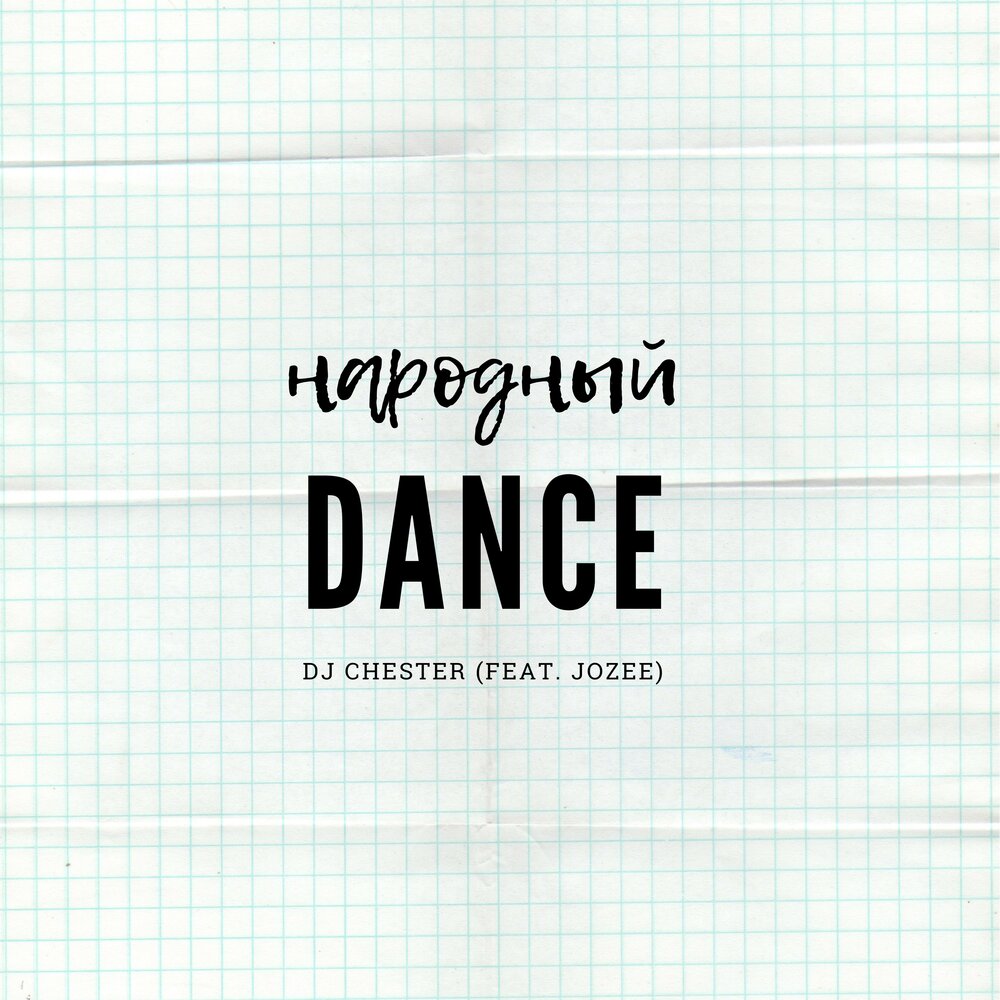 народный
DANCE
DJ CHESTER (FEAT. JOZEE)